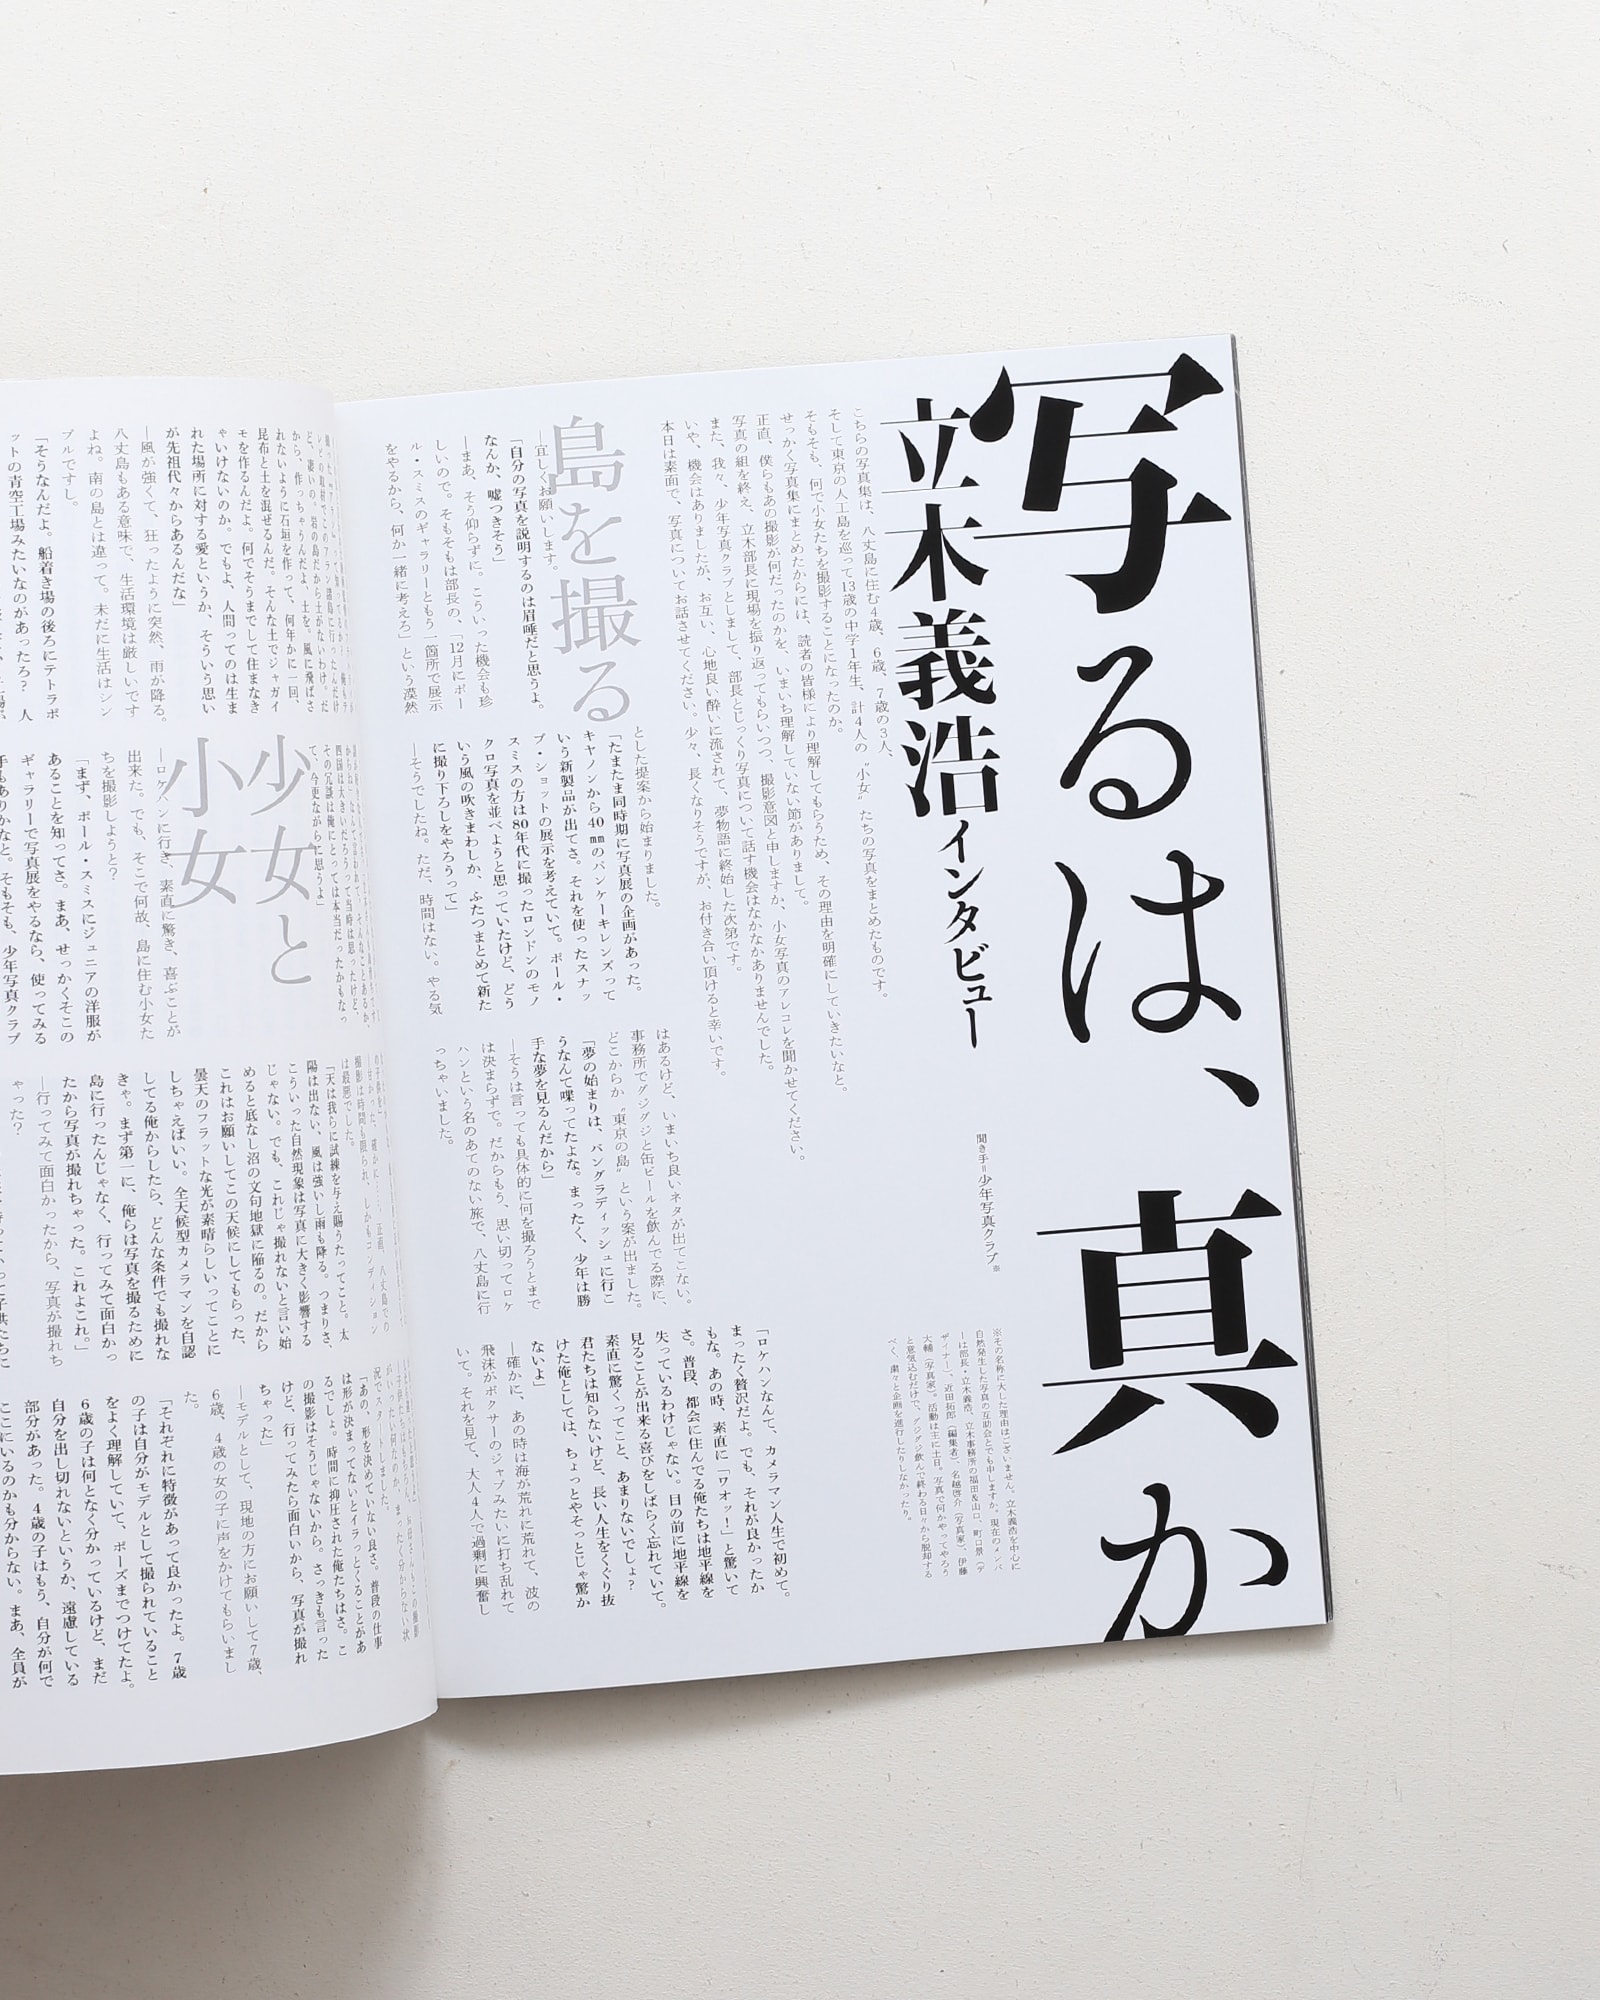 写るは、真か
立木義浩インタビュー
聞き手=少年写真クラブ※
※その名称に大した理由はございません。立木義浩を中心に
自然発生した写真の互助会とでも申しますか。現在のメンバ
ーは部長・立木義浩、立木事務所の福田&山口、町口景(デ
ザイナー)、近田拓郎(編集者)、名越啓介(写真家)、伊藤
大輔(写真家)。活動は主に土日。写真で何かやってやろう
と意気込むだけで、グジグジ飲んで終わる日々から脱却する
べく、粛々と企画を進行したりしなかったり。
こちらの写真集は、八丈島に住む4歳、6歳、7歳の3人、
そして東京の人工島を巡って13歳の中学1年生、計4人の“小女”たちの写真をまとめたものです。
そもそも、何で小女たちを撮影することになったのか。
せっかく写真集にまとめたからには、読者の皆様により理解してもらうため、その理由を明確にしていきたいなと。
正直、僕らもあの撮影が何だったのかを、いまいち理解していない節がありまして。
写真の組を終え、立木部長に現場を振り返ってもらいつつ、撮影意図と申しますか、小女写真のアレコレを聞かせてください。
また、我々、少年写真クラブとしまして、部長とじっくり写真について話す機会はなかなかありませんでした。
いや、機会はありましたが、お互い、心地良い酔いに流されて、夢物語に終始した次第です。
本日は素面で、写真についてお話させてください。少々、長くなりそうですが、お付き合い頂けると幸いです。
島を撮る
―宜しくお願いします。
「自分の写真を説明するのは眉唾だと思うよ。
なんか、嘘つきそう」
―まあ、そう仰らずに。こういった機会も珍
しいので。そもそもは部長の、「12月にポー
ル・スミスのギャラリーともう一箇所で展示
をやるから、何か一緒に考えろ」という漠然
とした提案から始まりました。
「たまたま同時期に写真展の企画があった。
キヤノンから40㎜のパンケーキレンズって
いう新製品が出てさ。それを使ったスナッ
プ・ショットの展示を考えていて。ポール・
スミスの方は80年代に撮ったロンドンのモノ
クロ写真を並べようと思っていたけど、どう
いう風の吹きまわしか、ふたつまとめて新た
に撮り下ろしをやろうって」
―そうでしたね。ただ、時間はない。やる気
はあるけど、いまいち良いネタが出てこない。
事務所でグジグジと缶ビールを飲んでる際に、
どこからか“東京の島”という案が出ました。
「夢の始まりは、バングラディッシュに行こ
うなんて喋ってたよな。まったく、少年は勝
手な夢を見るんだから」
―そうは言っても具体的に何を撮ろうとまで
は決まらずで。だからもう、思い切ってロケ
ハンという名のあてのない旅で、八丈島に行
っちゃいました。
「ロケハンなんて、カメラマン人生で初めて。
まったく贅沢だよ。でも、それが良かったか
もな。あの時、素直に「ワオッ!」と驚いて
さ。普段、都会に住んでる俺たちは地平線を
失っているわけじゃない。目の前に地平線を
見ることが出来る喜びをしばらく忘れていて。
素直に驚くってこと、あまりないでしょ?
君たちは知らないけど、長い人生をくぐり抜
けた俺としては、ちょっとやそっとじゃ驚か
ないよ」
―確かに、あの時は海が荒れに荒れて、波の
飛沫がボクサーのジャブみたいに打ち乱れて
いて。それを見て、大人4人で過剰に興奮し
ど、凄いの。岩の島だから土がないわけ。だ
から、作っちゃうんだよ、土を。風に飛ばさ
れないように石垣を作って、何年かに一回、
昆布と土を混ぜるんだ。そんな土でジャガイ
モを作るんだよ。何でそうまでして住まなき
ゃいけないのか。でもよ、人間ってのは生ま
れた場所に対する愛というか、そういう思い
が先祖代々からあるんだな」
―風が強くて、狂ったように突然、雨が降る。
八丈島もある意味で、生活環境は厳しいです
よね。南の島とは違って。未だに生活はシン
プルですし。
「そうなんだよ。船着き場の後ろにテトラポ
ットの青空工場みたいなのがあったろ? 人
その冗談は俺にとっては本当だったかもなっ
て、今更ながらに思うよ」
少女と
小女
―ロケハンに行き、素直に驚き、喜ぶことが
出来た。でも、そこで何故、島に住む小女た
ちを撮影しようと?
「まず、ポール・スミスにジュニアの洋服が
あることを知ってさ。まあ、せっかくそこの
ギャラリーで写真展をやるなら、使ってみる
手もありかなと。そもそも、少年写真クラブ
撮影は時間も限られ、しかもコンディション
は最悪でした。
「天は我らに試練を与え賜うたってこと。太
陽は出ない、風は強いし雨も降る。つまりさ、
こういった自然現象は写真に大きく影響する
じゃない。でも、これじゃ撮れないと言い始
めると底なし沼の文句地獄に陥るの。だから
これはお願いしてこの天候にしてもらった、
曇天のフラットな光が素晴らしいってことに
しちゃえばいい。全天候型カメラマンを自認
してる俺からしたら、どんな条件でも撮れな
きゃ。まず第一に、俺らは写真を撮るために
島に行ったんじゃなく、行ってみて面白かっ
たから写真が撮れちゃった。これよこれ。」
―行ってみて面白かったから、写真が撮れち
ゃった?
況でスタートしました。
「あの、形を決めていない良さ。普段の仕事
は形が決まってないとイラっとくることがあ
るでしょ。時間に抑圧された俺たちはさ。こ
の撮影はそうじゃないから。さっきも言った
けど、行ってみたら面白いから、写真が撮れ
ちゃった」
―モデルとして、現地の方にお願いして7歳、
6歳、4歳の女の子に声をかけてもらいまし
た。
「それぞれに特徴があって良かったよ。7歳
の子は自分がモデルとして撮られていること
をよく理解していて、ポーズまでつけてたよ。
6歳の子は何となく分かっているけど、まだ
自分を出し切れないというか、遠慮している
部分があった。4歳の子はもう、自分が何で
ここにいるのかも分からない。まあ、全員が